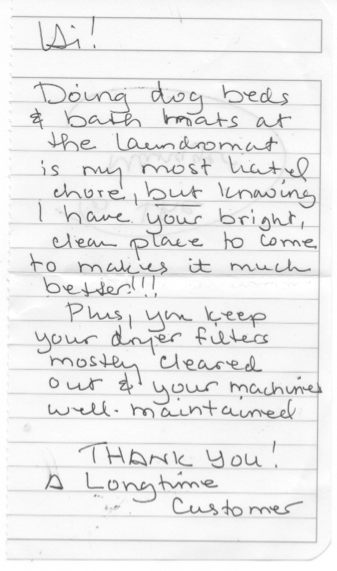 Hi!
Doing dog beds
& bath mats at
the laundromat
is my most hated
chore, but knowing
I have your bright,
clean place to come
to makes it much
better!!!
Plus, you keep
your dryer filters
mostly cleared
out & your machines
well-maintained
THANK YOU!
A Longtime
Customer